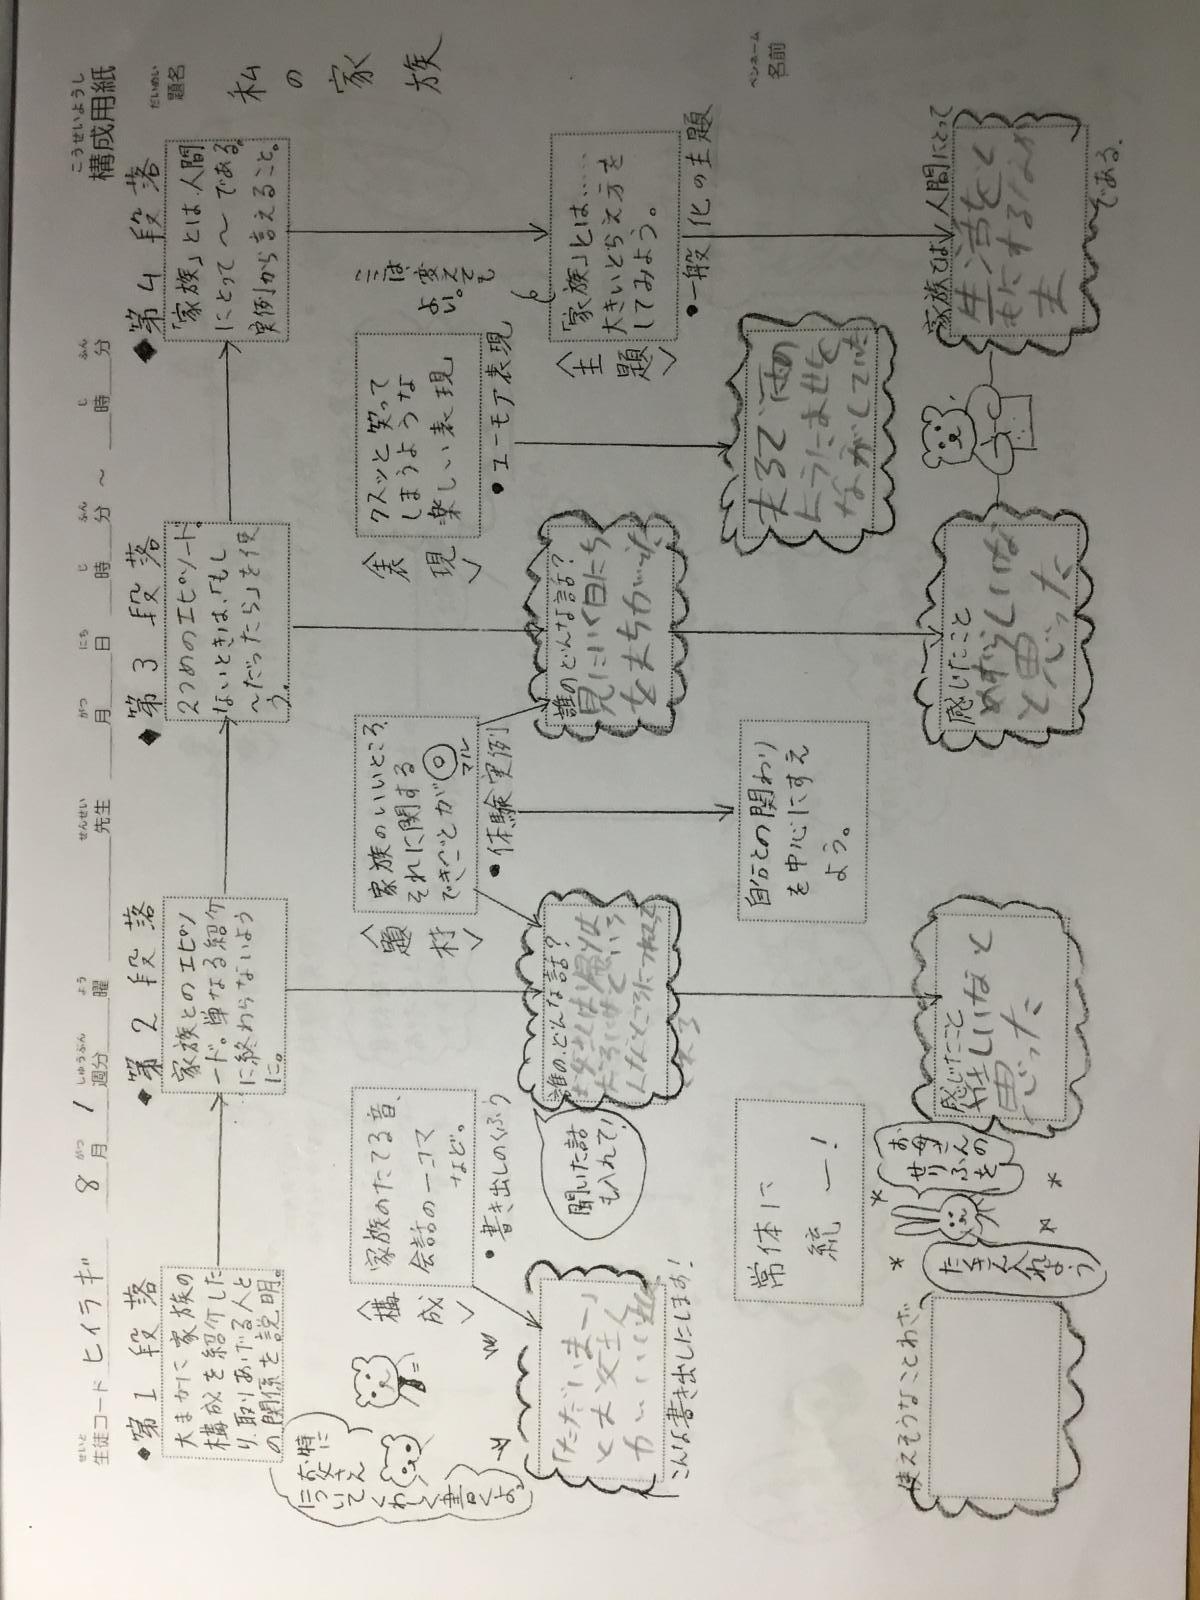 こうせいようし
構成用紙
せいと
生徒コード ヒイラギ
8 月 1 週分 曜 先生 月 日 時 分 ～ 時 分
がつ しゅうぶん よう せんせい がつ にち じ ふん じ ふん
だいめい
題名
私の家族
ペンネーム
名前
◆第1段落
大まかに家族の
構成を紹介した
り、取りあげる人と
の関係を説明。
特に
お父さん
について
くわしく
書くよ。
〈構成〉
家族のたてる音、
会話の一コマ
など。
●書き出しのくふう
「ただいまー」
とお父さん
こんな書き出しにします!
常体に
統一!
使えそうなことわざ
◆第2段落
家族とのエピソ
ード。単なる紹介
に終わらないよう
に。
〈題材〉
家族のいいところ、
それに関する
できごとが◎
マル
●体験実例
誰の、どんな話?
聞いた話
も入れて!
自分との関わり
を中心にすえ
よう。
感じたこと
嬉しいなと
思った
お母さんの
せりふを
たくさん入れよう
◆第3段落
2つめのエピソード。
ないときは、「もし
～だったら」を使
う。
〈表現〉
クスッと笑って
しまうような
楽しい表現
●ユーモア表現
誰のどんな話?
感じたこと
めずらしいな
と思った
◆第4段落
「家族」とは、人間
にとって～である。
実例から言えること。
ここは
変えても
よい。
〈主題〉
「家族」とは……
大きいとらえ方を
してみよう。
●一般化の主題
家族とは人間にとって
生活をと
もにするなか
ま
である.